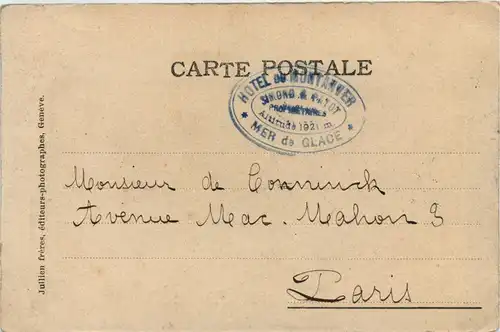 CARTE POSTALE
HOTEL DU MONTANVER
SIMOND & PAYOT
PROPRIÉTAIRES
Altitude 1921 m.
* MER de GLACE *
Monsieur de Conninck
Avenue Mac-Mahon 3
Paris
Jullien frères, éditeurs-photographes, Genève.